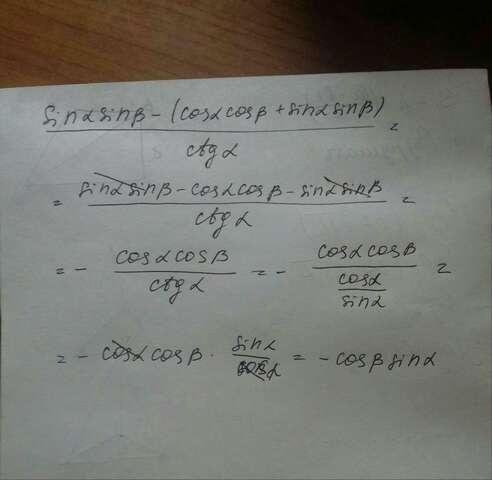 sinα sinβ - (cosα cosβ + sinα sinβ) / ctg α =
= sinα sinβ - cosα cosβ - sinα sinβ / ctg α =
= - cosα cosβ / ctg α = - cosα cosβ / (cosα / sinα) =
= - cosα cosβ · sinα / cosα = - cosβ sinα